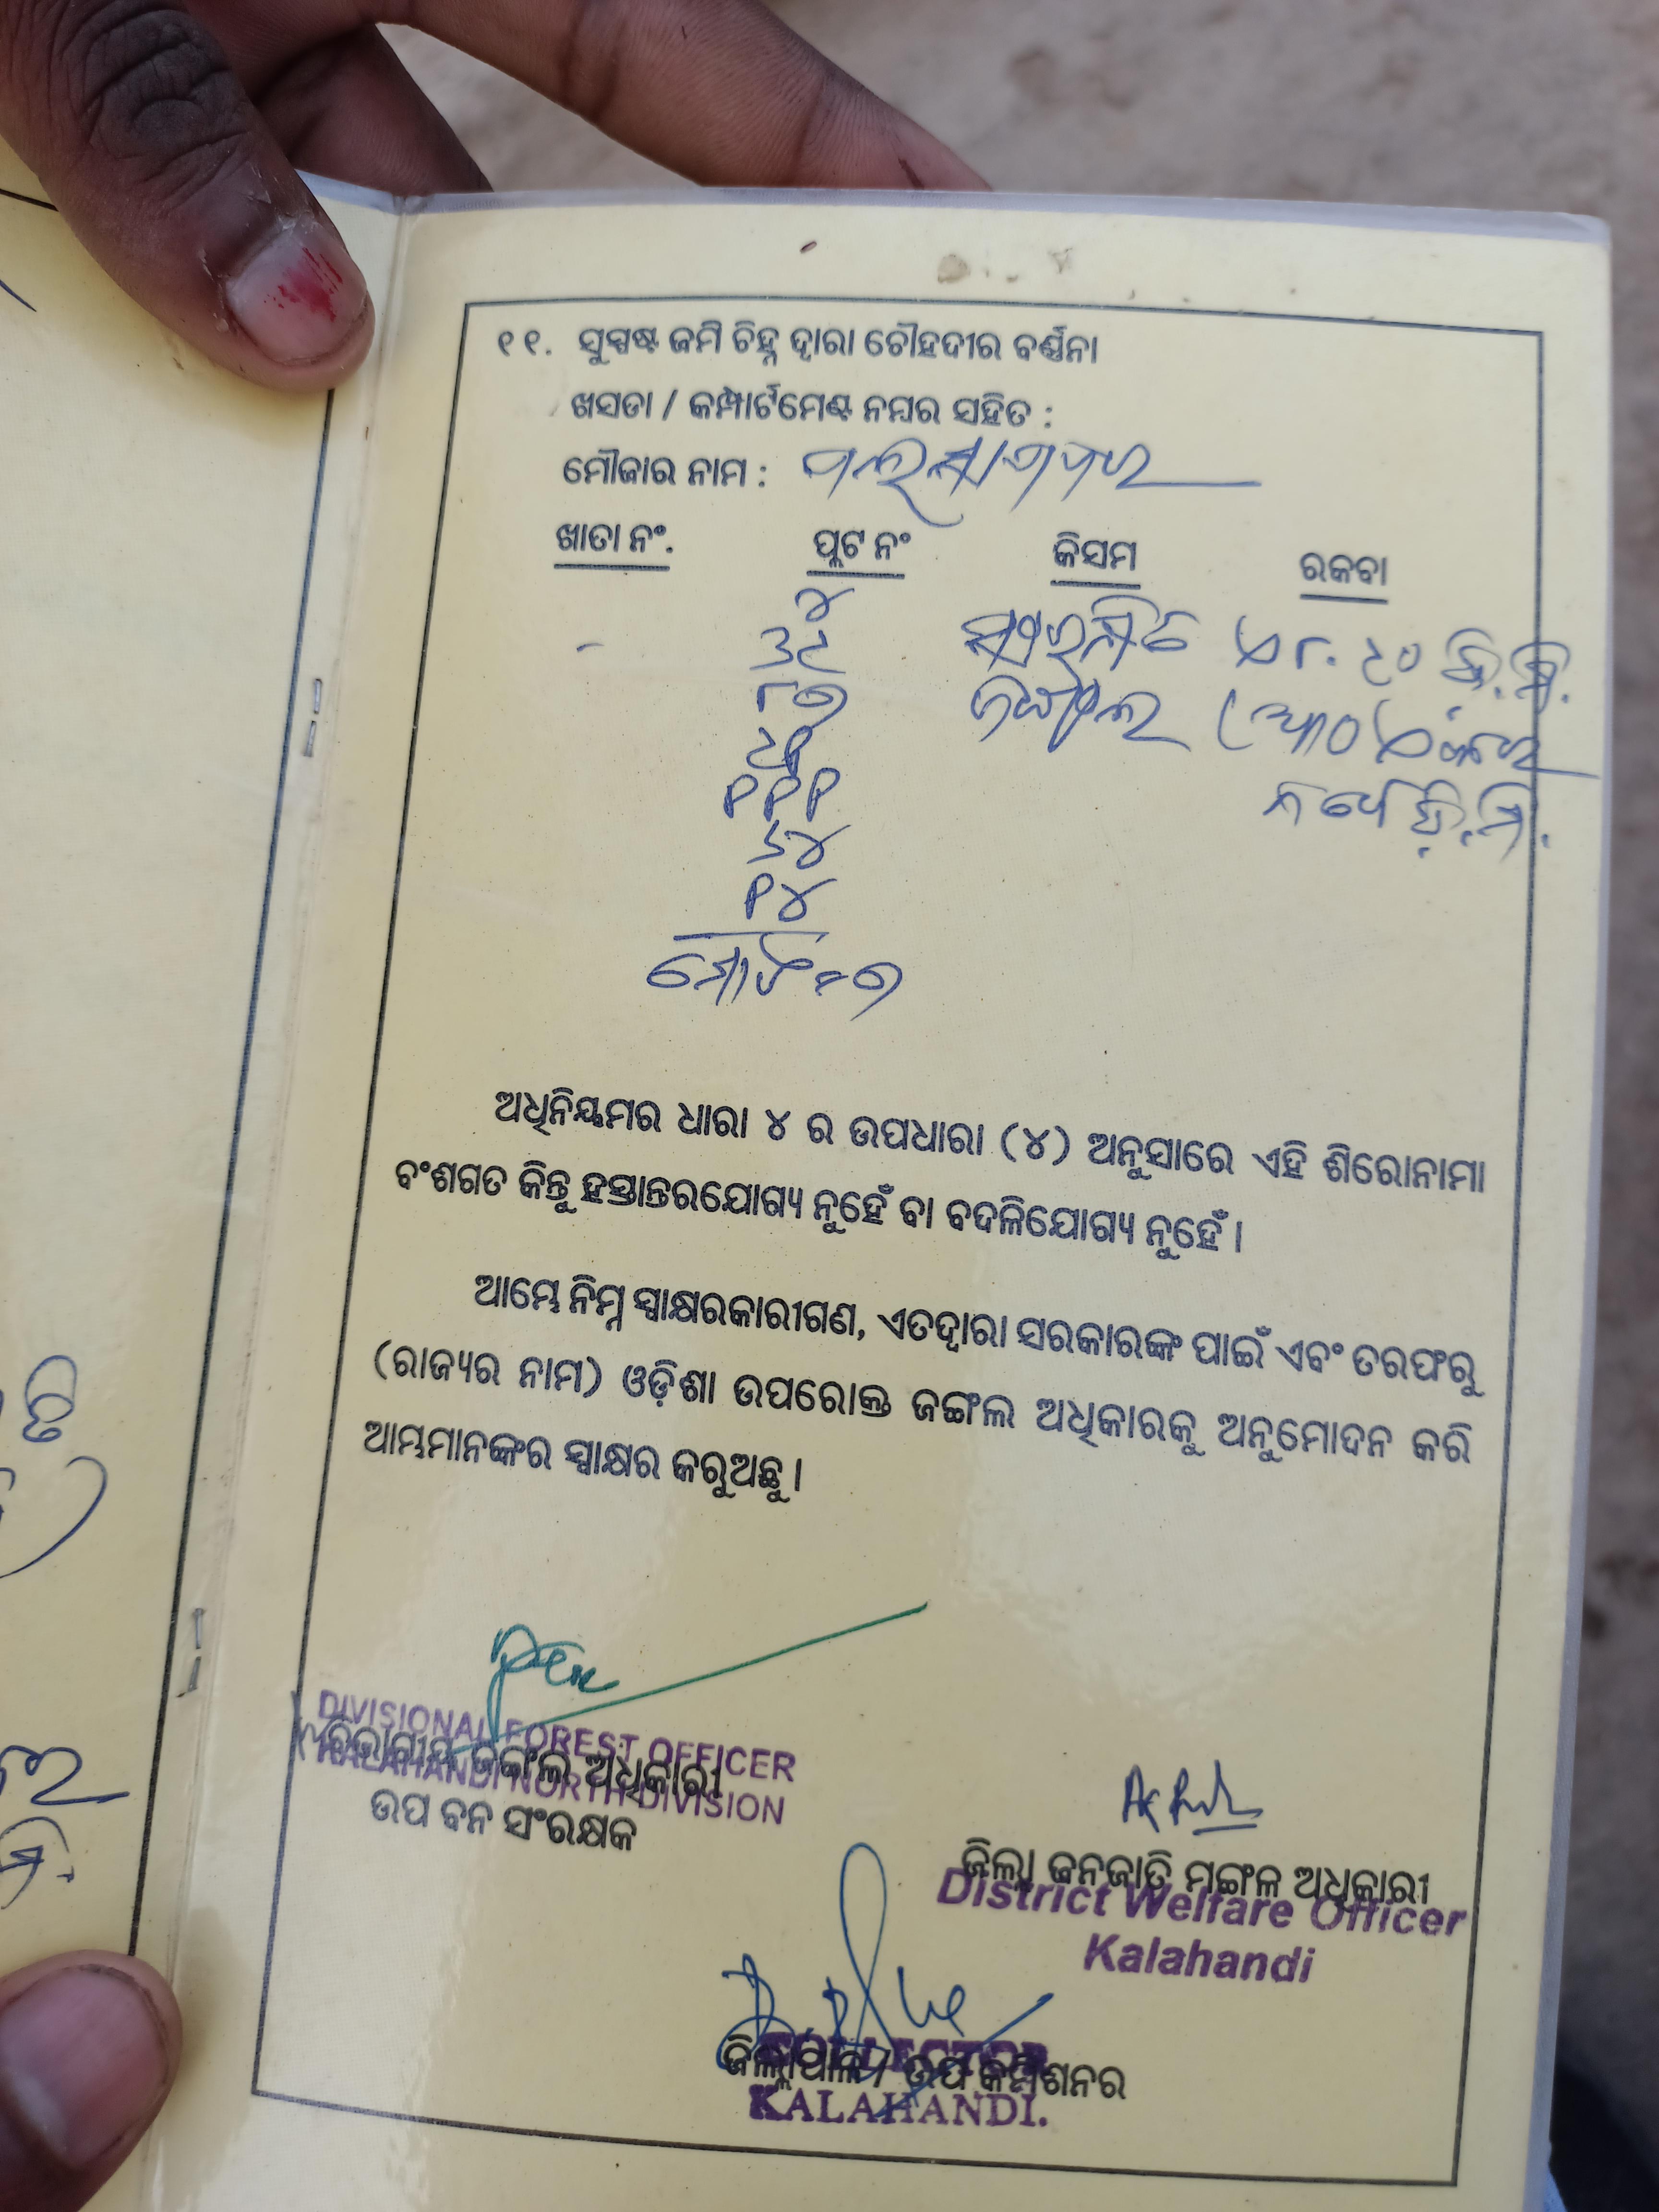 ୧୧. ସୁସ୍ପଷ୍ଟ ଜମି ଚିହ୍ନ ଦ୍ୱାରା ଚୌହଦୀର ବର୍ଣ୍ଣନା
ଖସଡା / କମ୍ପାର୍ଟମେଣ୍ଟ ନମ୍ବର ସହିତ :
ମୌଜାର ନାମ :
ଖାତା ନଂ. ପ୍ଲଟ ନଂ କିସମ ରକବା
୪
୩୯
୮୭
୧୧୧
୬୪
୧୪
ମୋଟ=୭
ଅଧିନିୟମର ଧାରା ୪ ର ଉପଧାରା (୪) ଅନୁସାରେ ଏହି ଶିରୋନାମା
ବଂଶଗତ କିନ୍ତୁ ହସ୍ତାନ୍ତରଯୋଗ୍ୟ ନୁହେଁ ବା ବଦଳିଯୋଗ୍ୟ ନୁହେଁ।
ଆମ୍ଭେ ନିମ୍ନ ସ୍ୱାକ୍ଷରକାରୀଗଣ, ଏତଦ୍ୱାରା ସରକାରଙ୍କ ପାଇଁ ଏବଂ ତରଫରୁ
(ରାଜ୍ୟର ନାମ) ଓଡ଼ିଶା ଉପରୋକ୍ତ ଜଙ୍ଗଲ ଅଧିକାରକୁ ଅନୁମୋଦନ କରି
ଆମ୍ଭମାନଙ୍କର ସ୍ୱାକ୍ଷର କରୁଅଛୁ।
DIVISIONAL FOREST OFFICER
ବିଭାଗୀୟ ଜଙ୍ଗଲ ଅଧିକାରୀ
KALAHANDI NORTH DIVISION
ଉପ ବନ ସଂରକ୍ଷକ
ଜିଲ୍ଲା ଜନଜାତି ମଙ୍ଗଳ ଅଧିକାରୀ
District Welfare Officer
Kalahandi
COLLECTOR
ଜିଲ୍ଲାପାଳ / ଉପ କମିଶନର
KALAHANDI.